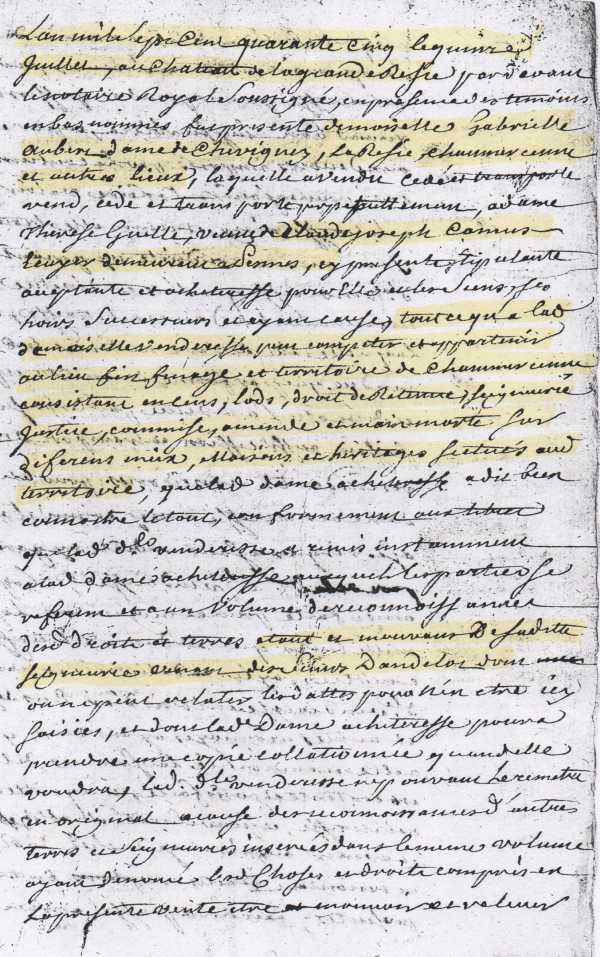 L'an mil sept Cent quarante Cinq le quinze
Juillet, au Chateau de la grande Resie par d'evant
le notaire Royal Soussigné, en presence des temoins
en bas nommés fut presente demoiselle Gabrielle
Aubert dame de Chevigney, La Resie, Chaumercenne
et autres lieux, laquelle a vendu cedé et transporté
vend, cede et transporte perpetuellement, a dame
Therese Guille, veuve de Claude joseph Camus
Ecuyer demeurant a Pesmes, cy presente, stipulante
acceptante et acheteresse pour Elle et les Siens, ses
hoirs Successeurs et ayant cause, tout ce qu'a lad
demoiselle venderesse peut competer et appartenir
au lieu fin finage et territoire de Chaumercenne
consistant en Cens, lods, droit de Retenue, seigneurie
Justice, commise, amende et main morte Sur
diferens meix, Maisons et heritages scitués aud
territoire, que lad dame acheteresse a dit bien
connoitre le tout, conformement aux titres
que lad. dlle venderesse a remis instamment
a lad dame acheteresse auxquels les parties se
referent et a un Volume de reconnoissances
desd droits et terres etant et mouvans De Sa ditte
seigneurie venant des Sieurs Dandelot dont
on ne peut relater les dattes pour n'en etre icy
saisies, et dont lad Dame acheteresse pourra
prendre une copie collationnée quand elle
voudra, lad. dlle venderesse ne pouvant Le remetre
en original a cause des reconnoissances d'autres
terres et Seigneuries inserées dans le meme volume
ayant denomé lesd Choses et droits compris en
La presente vente etre mouvoir et relever